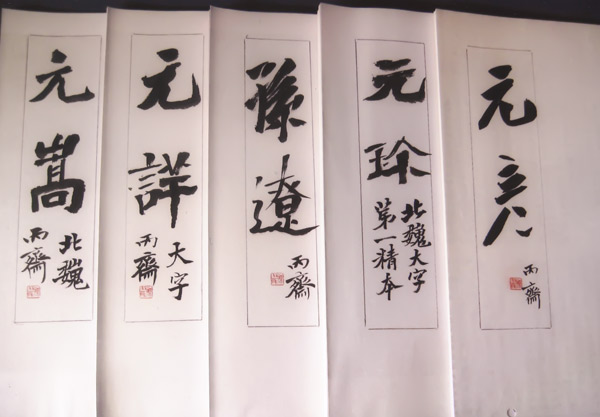 元
丙齋
元珎
北魏大字
第一精本
孫遼
丙齋
元詳
大字
丙齋
元嵩
北魏
丙齋